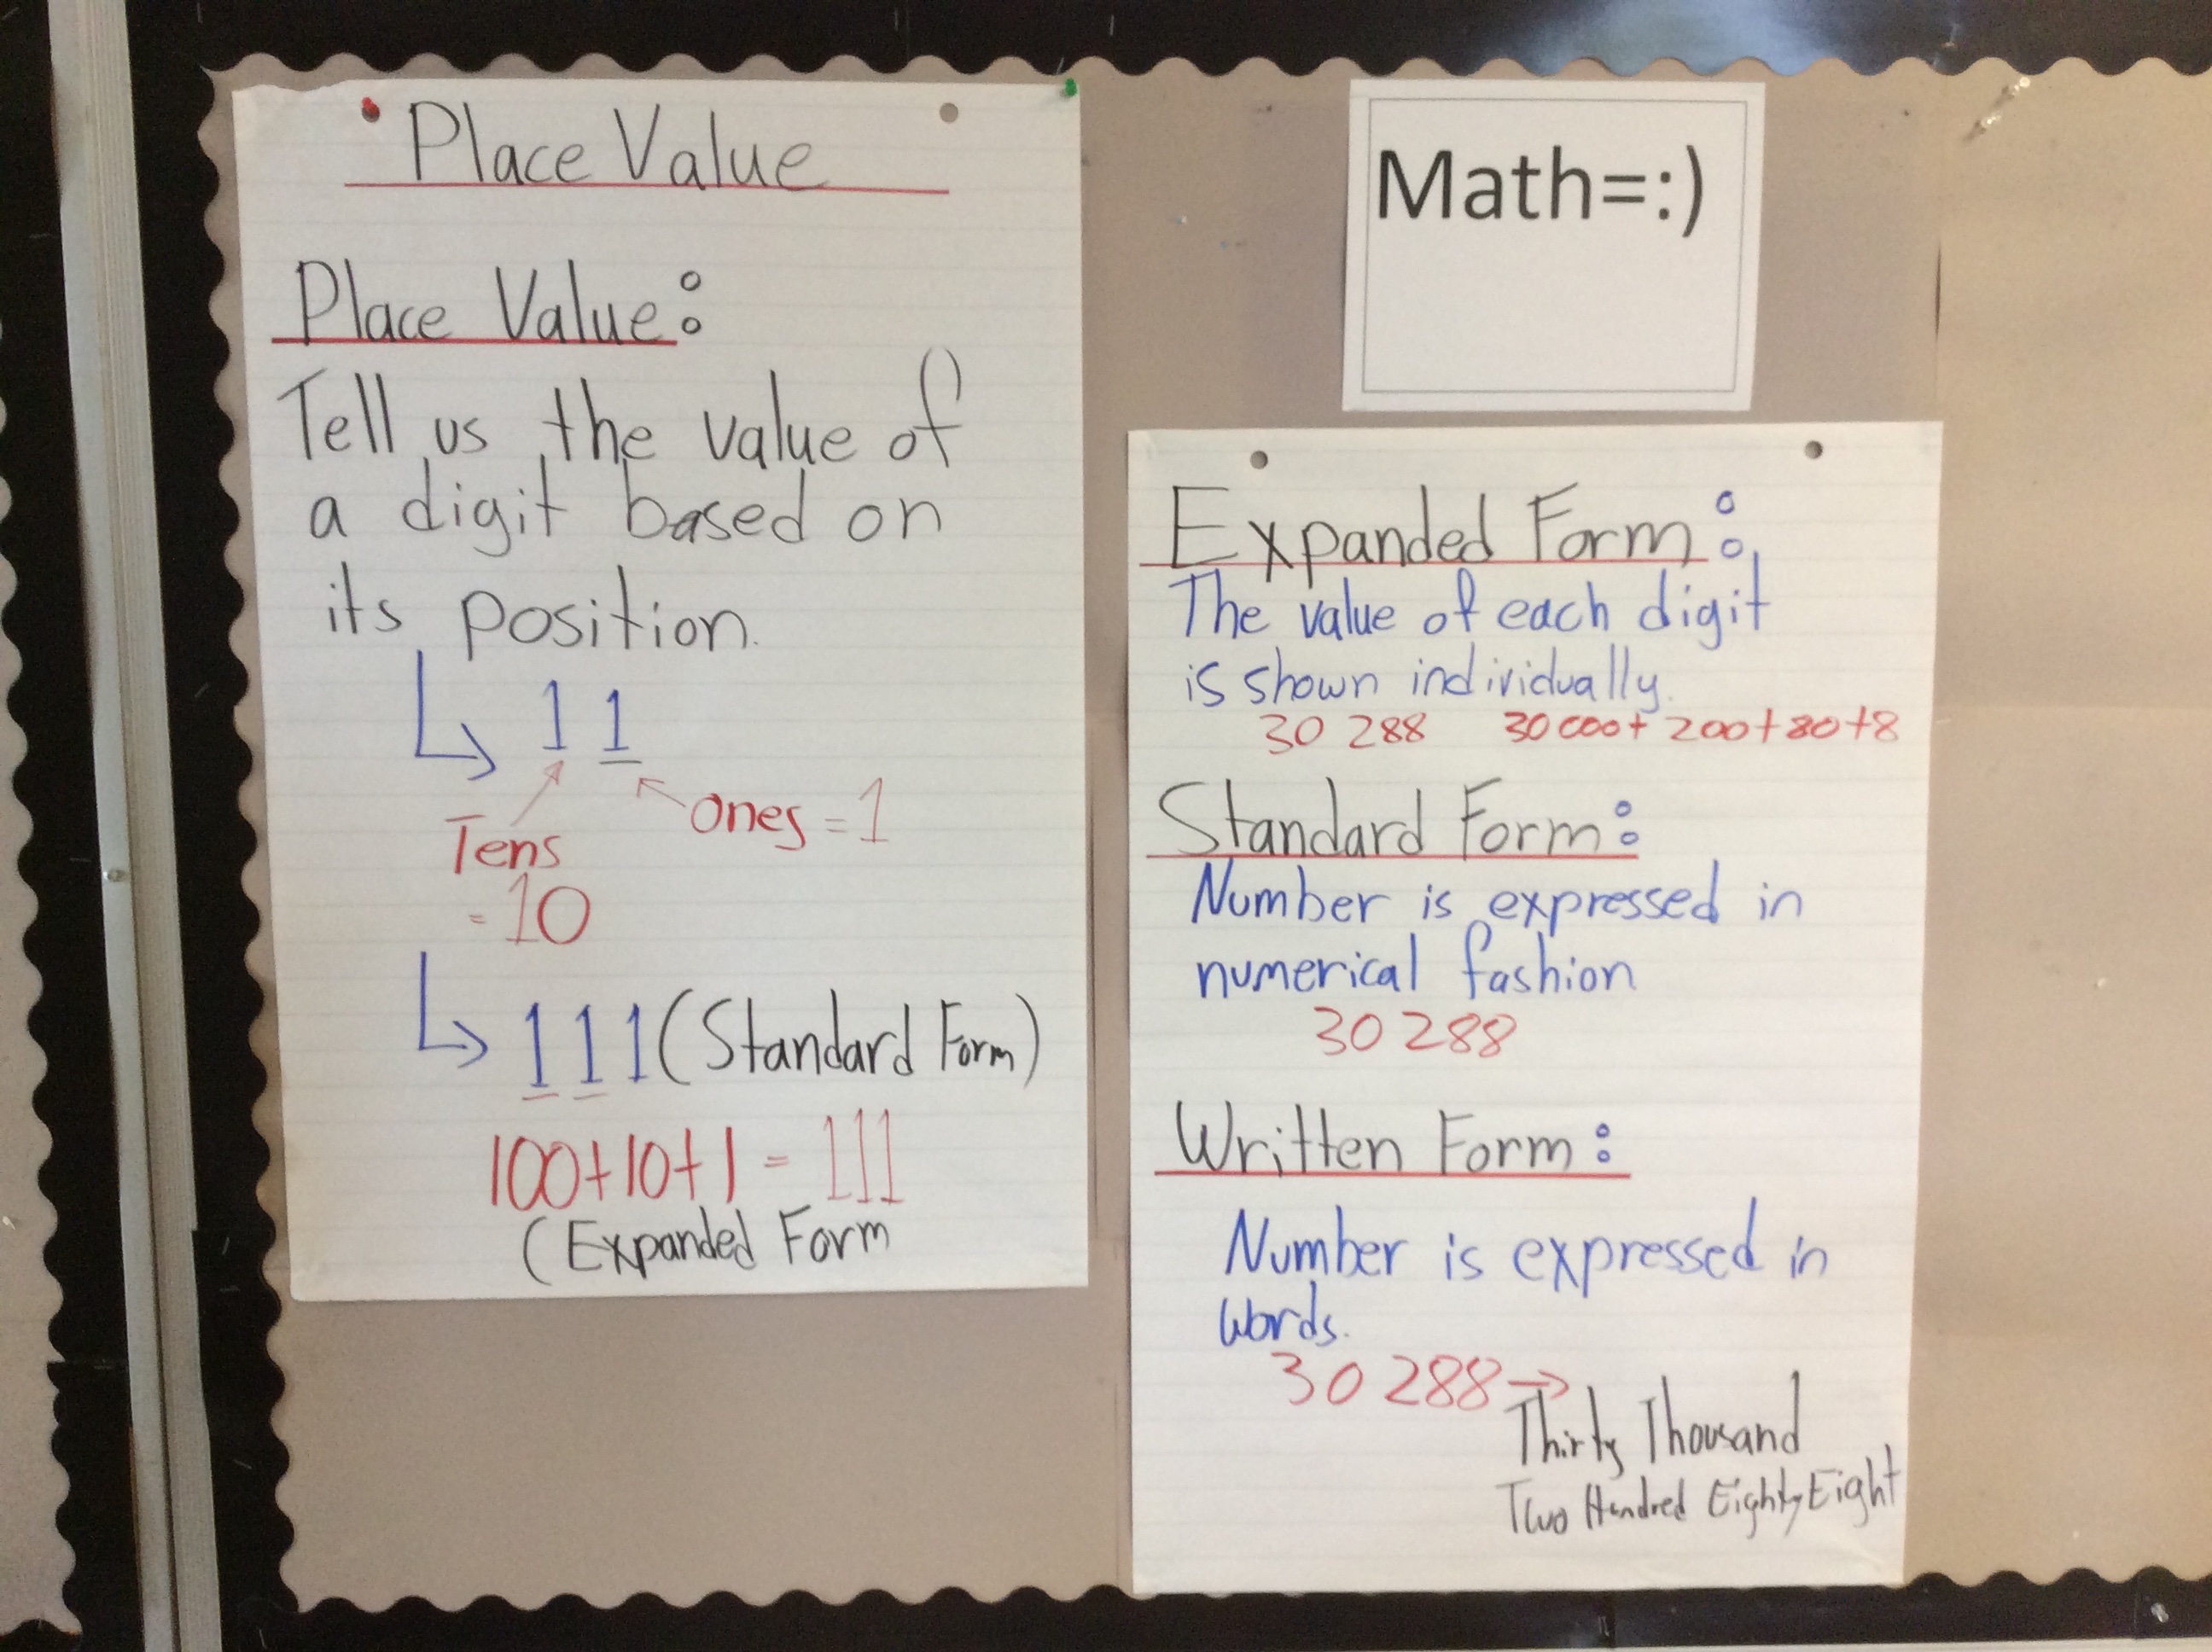 Place Value
Place Value:
Tell us the value of
a digit based on
its position.
1 1
Ones = 1
Tens
= 10
111 (Standard Form)
100+10+1 = 111
(Expanded Form
Math=:)
Expanded Form:
The value of each digit
is shown individually.
30 288 30 000+ 200+80+8
Standard Form:
Number is expressed in
numerical fashion
30 288
Written Form:
Number is expressed in
words.
30 288→
Thirty Thousand
Two Hundred Eighty Eight